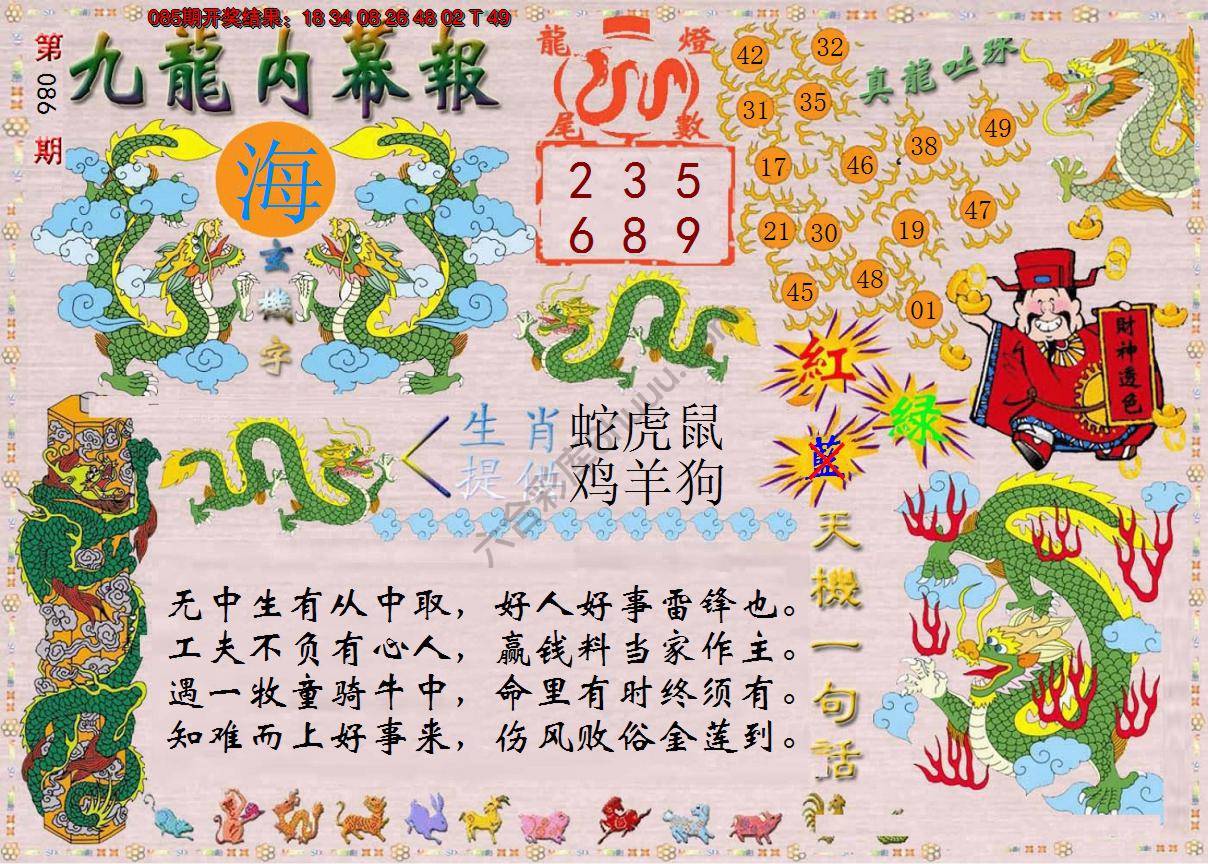 085期开奖结果：18 34 08 26 48 02 T 49
第086期
九龍内幕報
海
玄機字
龍燈
尾數
2 3 5
6 8 9
真龍吐珠
42 32
31 35
17 46 38 49
21 30 19 47
45 48 01
財神透色
紅
綠
藍
生肖
提供
蛇虎鼠
鸡羊狗
无中生有从中取，好人好事雷锋也。
工夫不负有心人，赢钱料当家作主。
遇一牧童骑牛中，命里有时终须有。
知难而上好事来，伤风败俗金莲到。
天機一句話